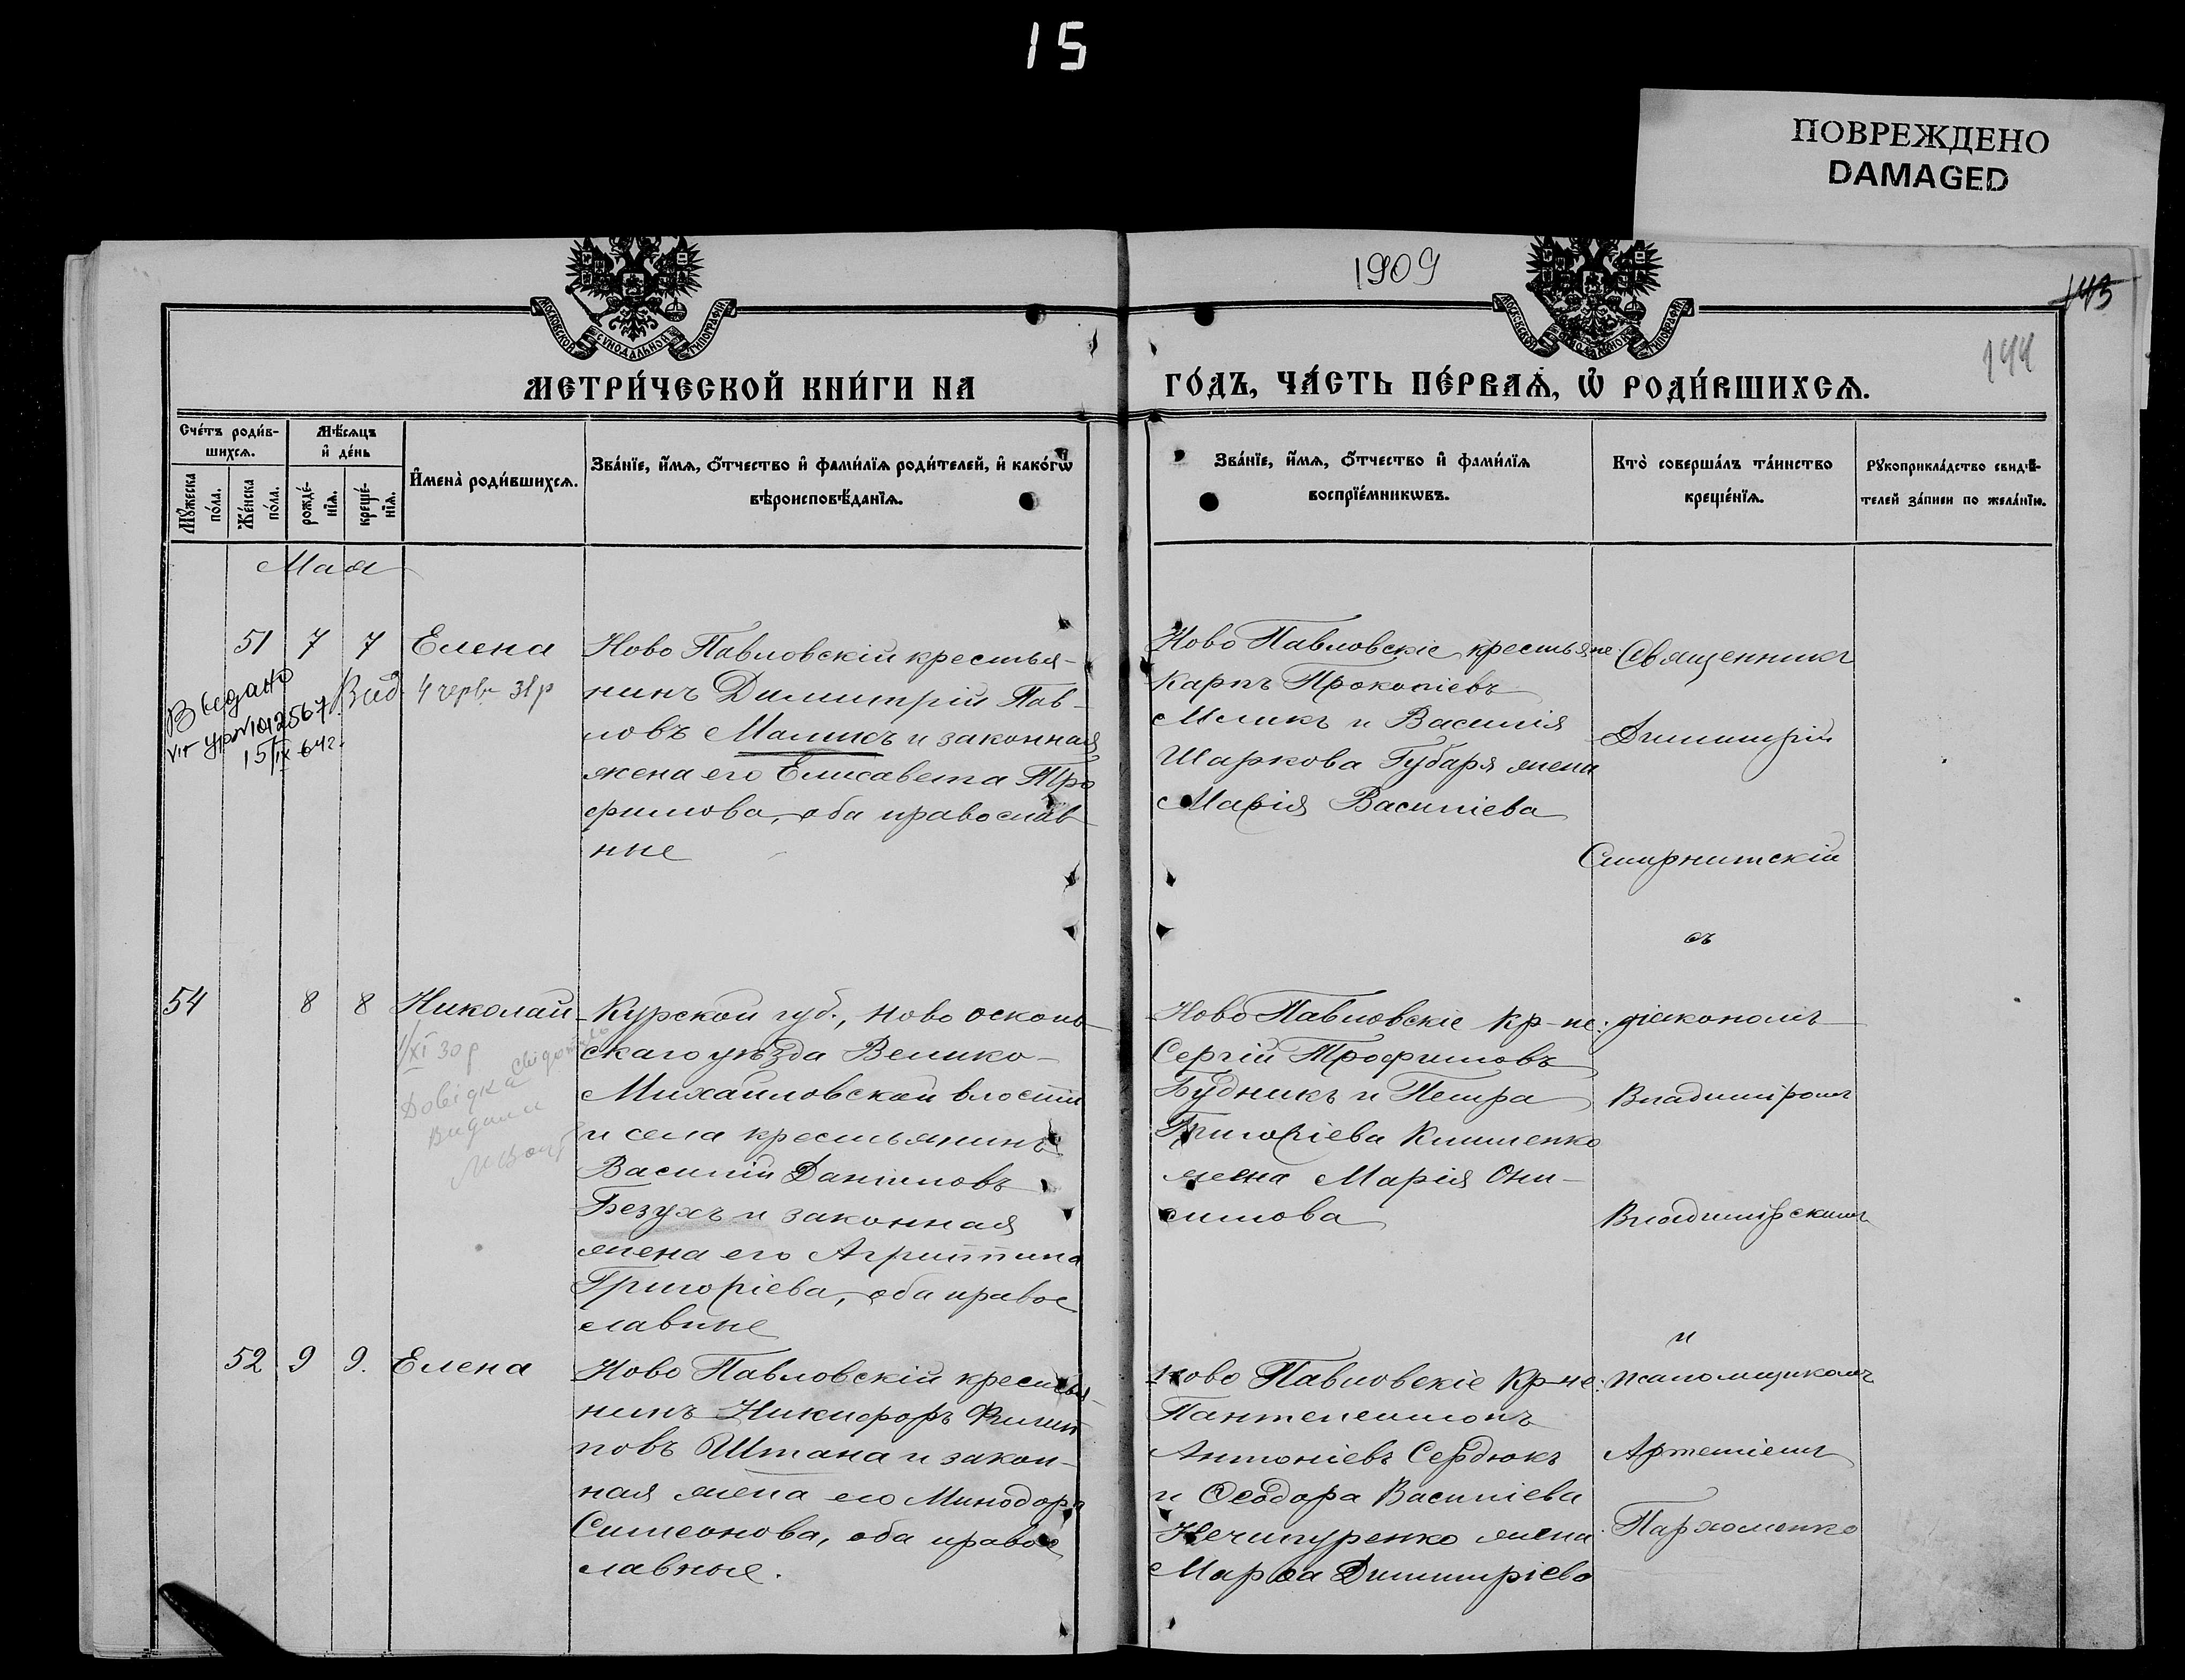 15
ПОВРЕЖДЕНО
DAMAGED
1909
143
144
МОСКОВСКОЙ СѴНОДАЛЬНОЙ ТИПОГРАФІИ
МОСКОВСКОЙ СѴНОДАЛЬНОЙ ТИПОГРАФІИ
МЕТРИ́ЧЕСКОЙ КНИ́ГИ НА
ГО́ДЪ, ЧА́СТЬ ПЕ́РВАѦ, Ѡ҆ РОДИ́ВШИХСѦ.
Сче́тъ роди́в-
шихсѧ.
Мѣ́сѧцъ
и҆ де́нь
Мꙋ́жеска
по́ла.
Же́нска
по́ла.
рожде́-
нїѧ.
креще́-
нїѧ.
И҆мена̀ роди́вшихсѧ.
Зва́нїе, и҆́мѧ, ѻ҆́тчество и҆ фами́лїѧ роди́телей, и҆ како́гѡ
вѣроисповѣ́данїѧ.
Зва́нїе, и҆́мѧ, ѻ҆́тчество и҆ фами́лїѧ
воспрїе́мникѡвъ.
Кто̀ соверша́лъ та́инство
креще́нїѧ.
Рꙋкоприкла́дство свидѣ́-
телей за́писи по жела́нїю.
Мая
51 7 7 Елена
Вид 4 черв 31 р
Выдано
1012567
15/IX 64 г.
Ново Павловскій крестья-
нинъ Димитрій Пав-
ловъ Маликъ и законная
жена его Елисавета Тро
фимова, оба православ
ные
Ново Павловскіе крестьяне
Карпъ Прокопіевъ
Меликъ и Василія
Шаркова Губаря жена
Марія Василіева
Священникъ
Димитрій
Смирнитскій
съ
54 8 8 Николай
1/XI 30 р
Довідка
Видана
Курской губ., Ново Осколь
скаго уѣзда Велико-
Михайловской влости
и села крестьянинъ
Василій Даниловъ
Безухъ и законная
жена его Агриппина
Григоріева, оба правос
лавные
Ново Павловскіе Кр-не:
Сергій Трофимовъ
Будникъ и Петра
Григоріева Клименко
жена Марія Они-
симова
діакономъ
Владиміромъ
Владимірскимъ
и
52 9 9. Елена
Ново Павловскій крестья
нинъ Никифоръ Филип
повъ Штана и закон-
ная жена его Минодора
Симеонова, оба правос
лавные.
Ново Павловскіе Кр-не:
Пантелеимонъ
Антоніевъ Сердюкъ
и Ѳеодора Василіева
Нечипуренко жена
Марѳа Димитріева
псаломщикомъ
Артеміемъ
Пархоменко